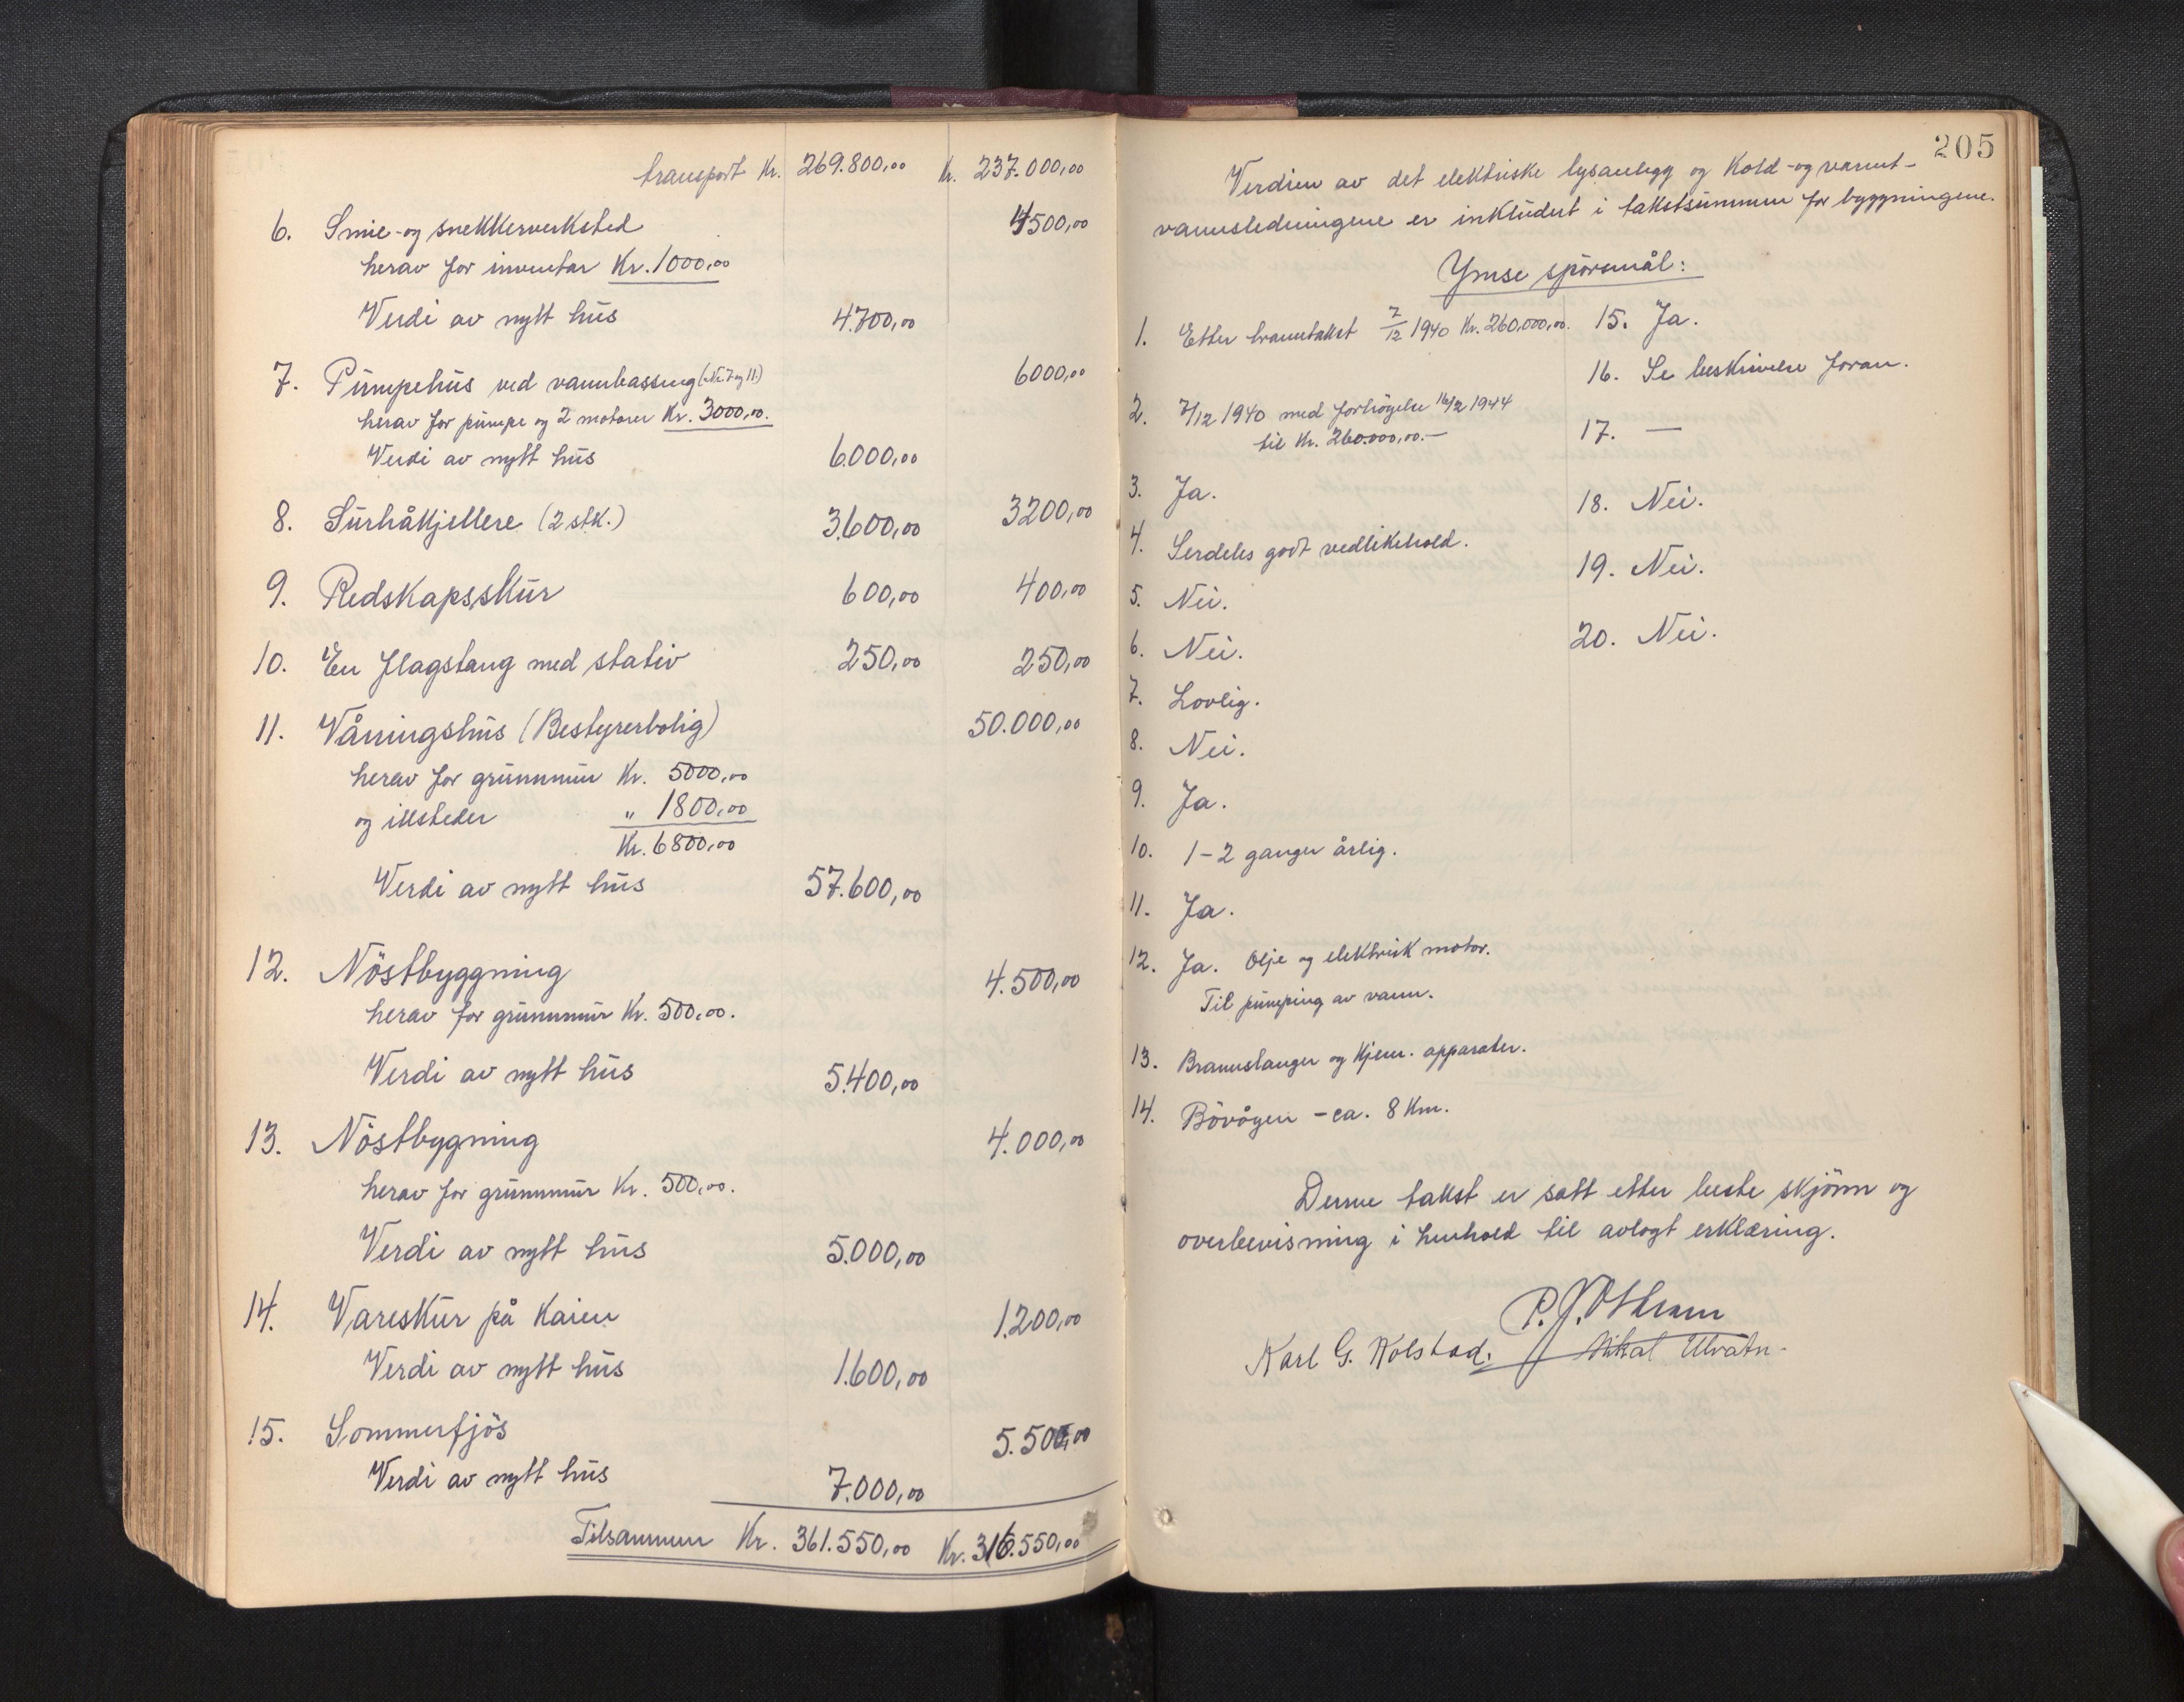 transport Kr. 269.800,00 Kr. 237.000,00
6. Smie- og snekkerverksted 4500,00
herav for inventar Kr. 1000,00
Verdi av nytt hus 4.700,00
7. Pumpehus ved vannbasseng (Nr. 7 og 11.) 6000,00
herav for pumpe og 2 motorer Kr. 3000,00.
Verdi av nytt hus 6.000,00
8. Surhåkjellere (2 stk.) 3.600,00 3200,00
9. Redskapsskur 600,00 400,00
10. En flagstang med stativ 250,00 250,00
11. Våningshus (Bestyrerbolig) 50.000,00
herav for grunnmur Kr. 5000,00
og ildsteder " 1800,00
Kr. 6800,00
Verdi av nytt hus 57.600,00
12. Nöstbyggning 4.500,00
herav for grunnmur Kr. 500,00.
Verdi av nytt hus 5.400,00
13. Nöstbygning 4.000,00
herav for grunnmur Kr. 500,00.
Verdi av nytt hus 5.000,00
14. Vareskur på Kaien 1.200,00
Verdi av nytt hus 1.600,00
15. Sommerfjös 5.500,00
Verdi av nytt hus 7.000,00
Tilsammen Kr. 361.550,00 Kr. 316.550,00
205
Verdien av det elektriske lysanlegg og Kold- og varmt-
vannsledningene er inkludert i takstsummen for byggningene.
Ymse spörsmål:
1. Etter branntakst 7/12 1940 Kr. 260.000,00.
2. 7/12 1940 med forhögelse 16/2 1944
til Kr. 260.000,00.—
3. Ja.
4. Serdeles godt vedlikehold.
5. Nei.
6. Nei.
7. Lovlig.
8. Nei.
9. Ja.
10. 1-2 ganger årlig.
11. Ja.
12. Ja. Olje og elektrisk motor.
Til pumping av vann.
13. Brannslanger og Kjem. apparater.
14. Bövågen - ca. 8 Km.
15. Ja.
16. Se beskrivelse foran.
17. —
18. Nei.
19. Nei.
20. Nei.
Denne takst er satt etter beste skjönn og
overbevisning i henhold til avlagt erklæring.
P. J.
Karl G. Kolstad.